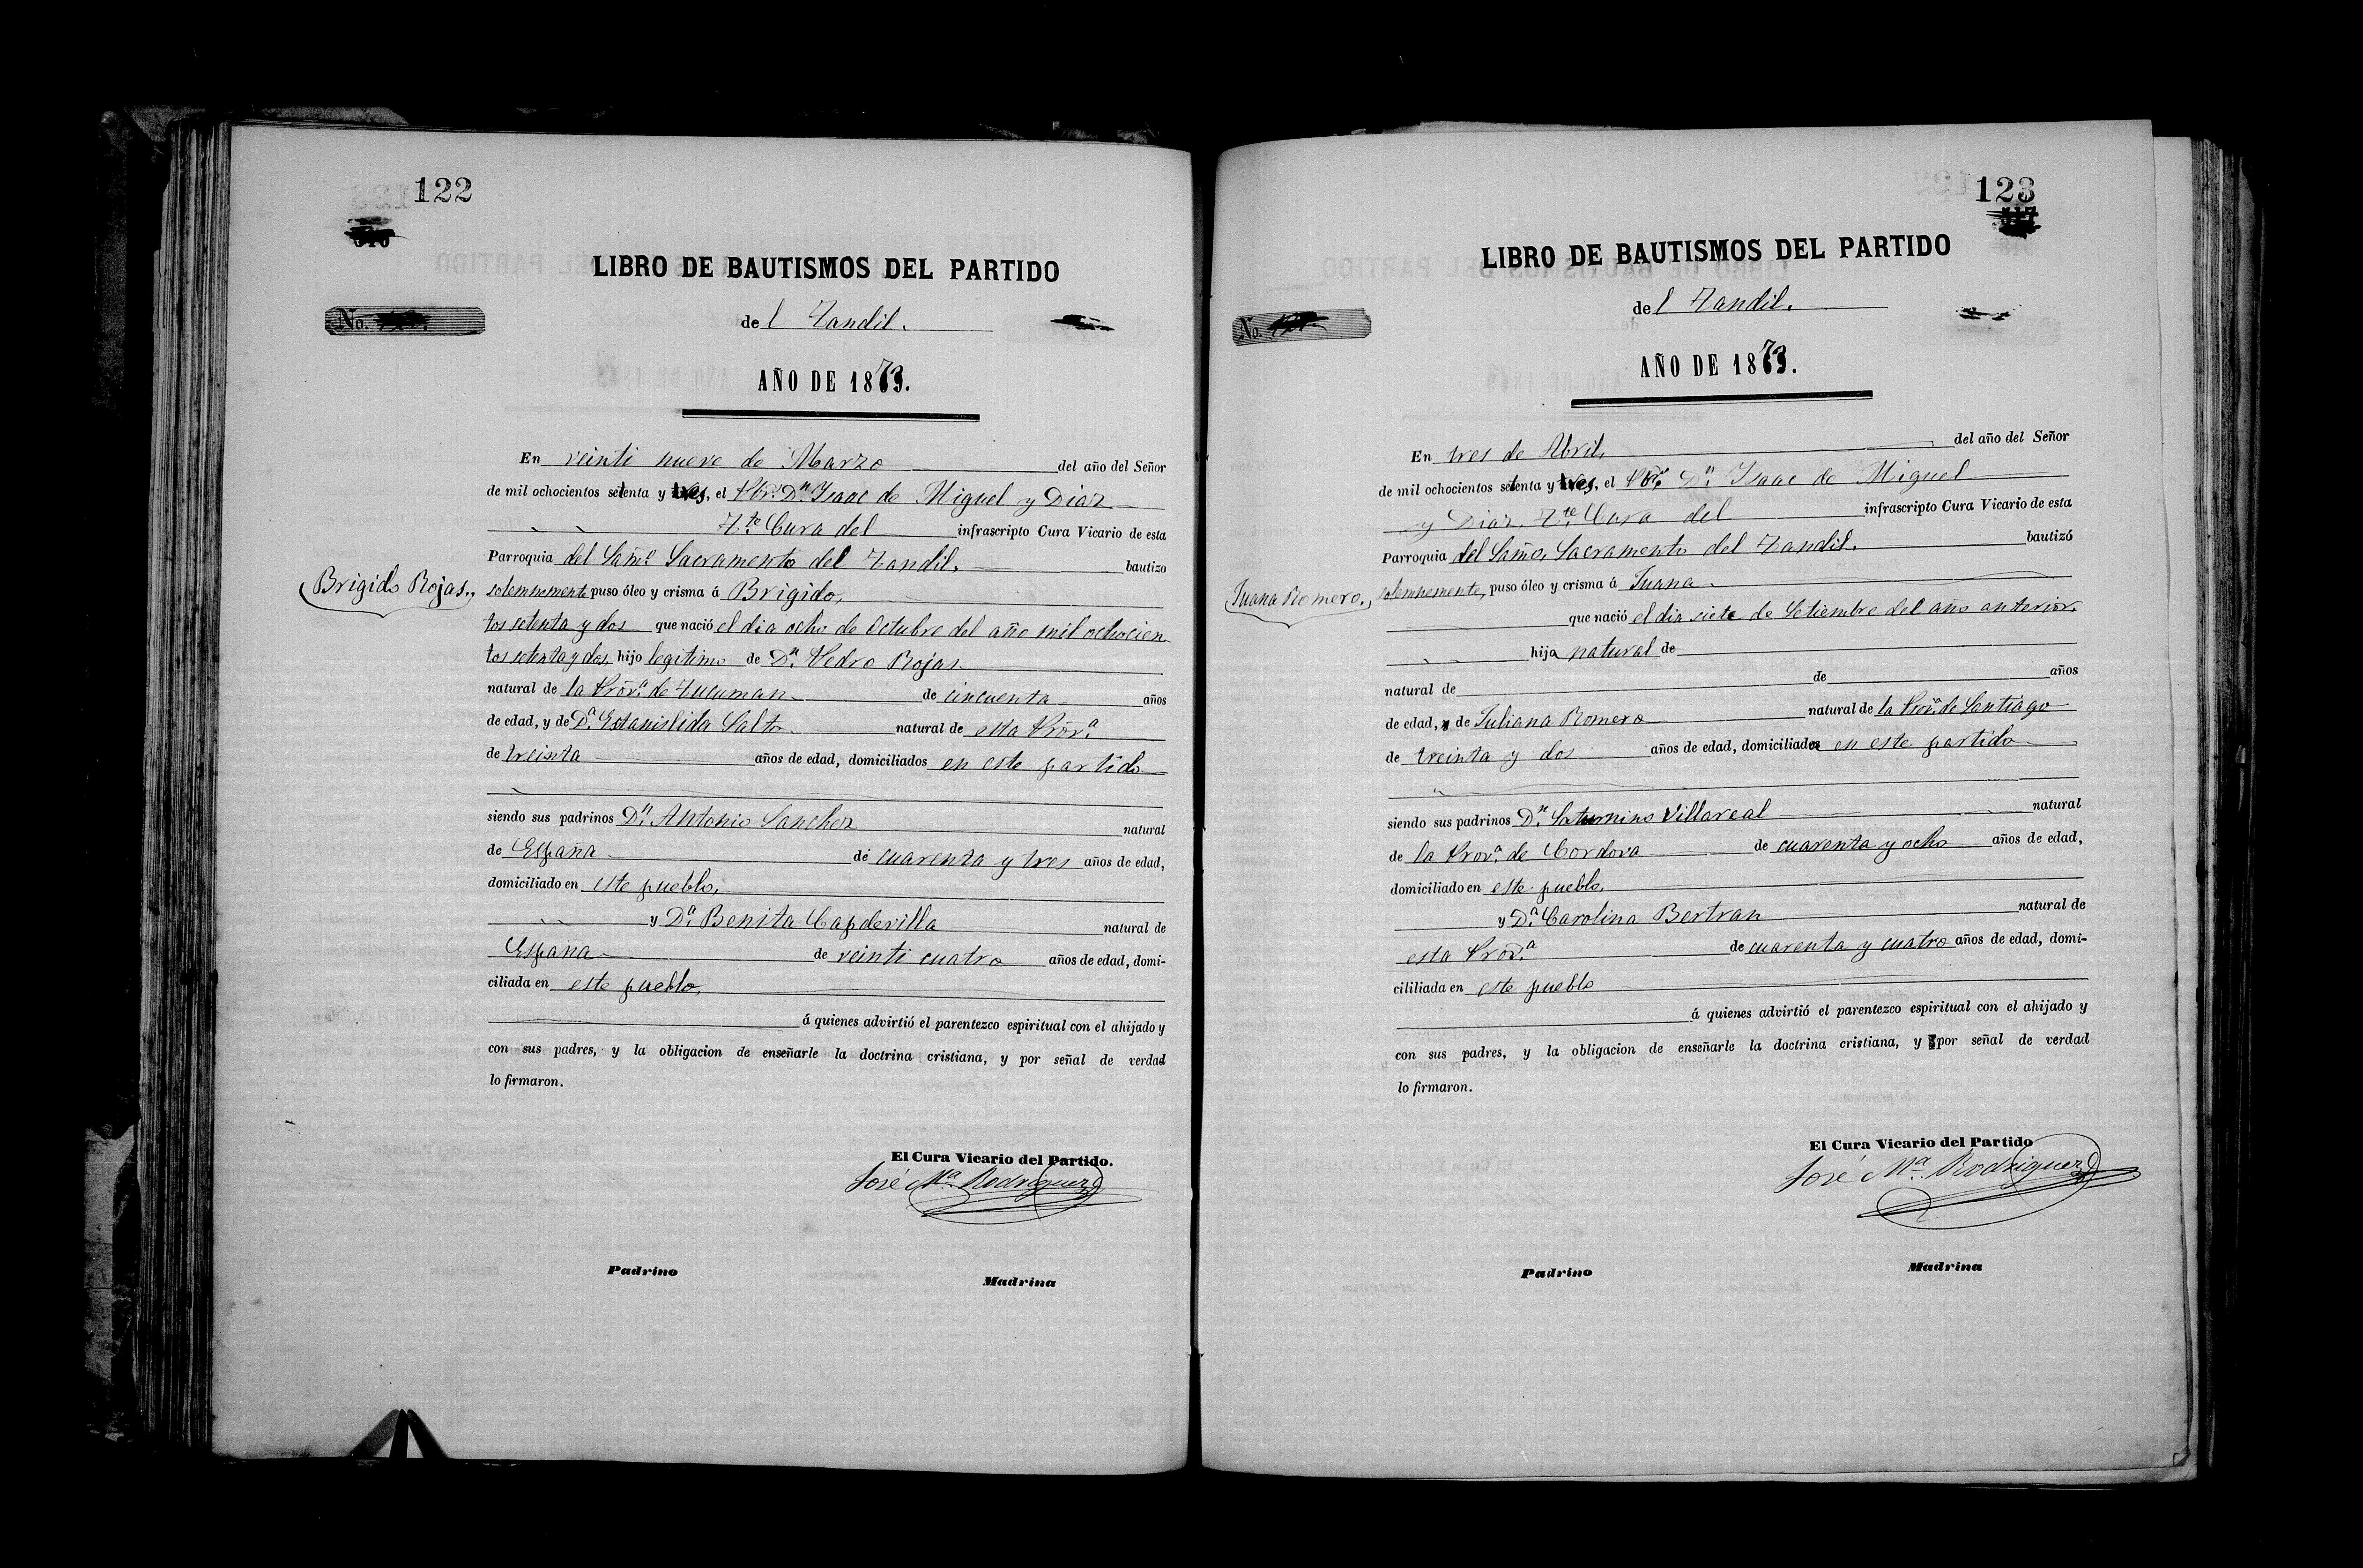 122
LIBRO DE BAUTISMOS DEL PARTIDO
No.
del Tandil.
AÑO DE 1873.
En veinti nueve de Marzo del año del Señor
de mil ochocientos setenta y tres, el Pbr. Dn. Isaac de Miguel y Diaz
Tte. Cura del infrascripto Cura Vicario de esta
Parroquia del Samo. Sacramento del Tandil. bautizo
Brigido Rojas., solemnemente puso óleo y crisma á Brigido,
tos setenta y dos que nació el dia ocho de Octubre del año mil ochocien
tos setenta y dos, hijo legitimo de Dn. Pedro Rojas
natural de la Prova. de Tucuman de cincuenta años
de edad, y de Da. Estanislida Salto natural de esta Prova.
de treinta años de edad, domiciliados en este partido
siendo sus padrinos Dn. Antonio Sanchez natural
de España de cuarenta y tres años de edad,
domiciliado en este pueblo,
y Da. Benita Capdevilla natural de
España de veinti cuatro años de edad, domi-
ciliada en este pueblo,
á quienes advirtió el parentezco espiritual con el ahijado y
con sus padres, y la obligacion de enseñarle la doctrina cristiana, y por señal de verdad
lo firmaron.
El Cura Vicario del Partido.
José Ma. Rodriguez
Padrino
Madrina
123
517
LIBRO DE BAUTISMOS DEL PARTIDO
No.
del Tandil.
AÑO DE 1873.
En tres de Abril, del año del Señor
de mil ochocientos setenta y tres, el Pbro. Dn. Isaac de Miguel
y Diaz, Tte. Cura del infrascripto Cura Vicario de esta
Parroquia del Samo. Sacramento del Tandil. bautizó
Juana Romero., solemnemente, puso óleo y crisma á Juana
que nació el dia siete de Setiembre del año anterior,
hija natural de
natural de de años
de edad, y de Juliana Romero natural de la Prova. de Santiago
de treinta y dos años de edad, domiciliados en este partido
siendo sus padrinos Dn. Saturnino Villareal natural
de la Prova. de Cordova de cuarenta y ocho años de edad,
domiciliado en este pueblo,
y Da. Carolina Bertran natural de
esta Prova. de cuarenta y cuatro años de edad, domi-
cililiada en este pueblo
á quienes advirtió el parentezco espiritual con el ahijado y
con sus padres, y la obligacion de enseñarle la doctrina cristiana, y por señal de verdad
lo firmaron.
El Cura Vicario del Partido
José Ma. Rodriguez
Padrino
Madrina